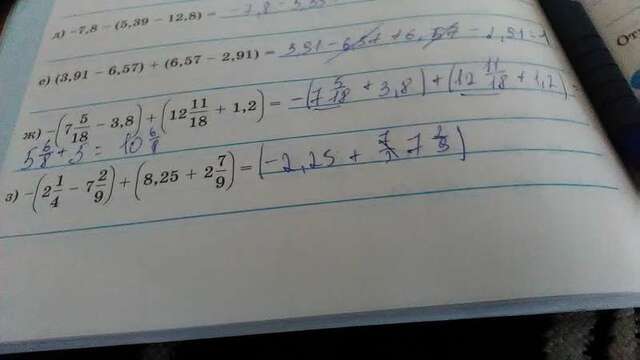 д) -7,8 - (5,39 - 12,8) = -7,8 -
е) (3,91 - 6,57) + (6,57 - 2,91) = 3,91 - 6,57 + 6,57 - 2,91 = 1
ж) -(7 5/18 - 3,8) + (12 11/18 + 1,2) = -(7 5/18 + 3,8) + (12 11/18 + 1,2) =
5 6/8 + 5 = 10 6/8
з) -(2 1/4 - 7 2/9) + (8,25 + 2 7/9) = (-2,25 + 7 2/9)
От